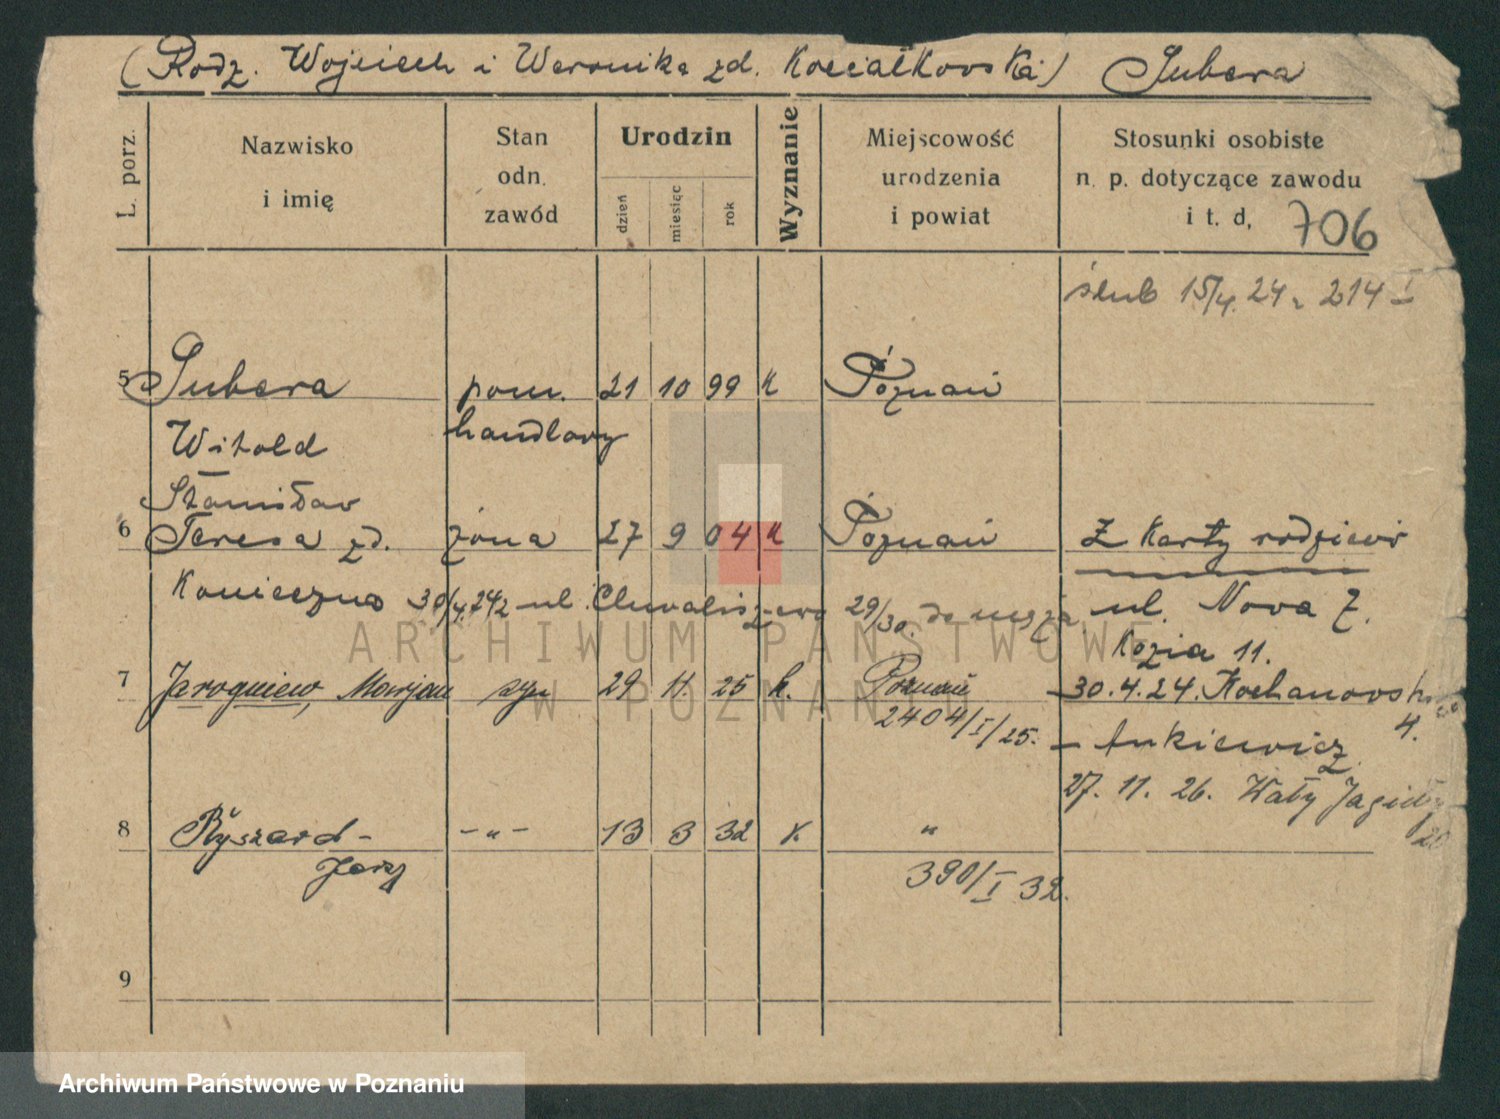 (Rodz. Wojciech i Weronika zd. Kociałkovska) Subera
L. porz.
Nazwisko
i imię
Stan
odn.
zawód
Urodzin
dzień
miesiąc
rok
Wyznanie
Miejscowość
urodzenia
i powiat
Stosunki osobiste
n. p. dotyczące zawodu
i t. d,
706
ślub 15/4. 24 r 214 I
5 Subera pom. 21 10 99 K Poznań
Witold handlowy
Stanisław
6 Teresa zd. żona 27 9 04 K Poznań Z Karty rodziców
Konieczna 30/4.24 z ul. Chwaliszewo 29/30. do męża ul. Nova 7.
Kozia 11.
7 Jarogniew, Marjan syn 29 11 25 k. Poznań 30.4.24. Kochanovska 4.
2404/I/25. - Ankiewicz
27. 11. 26. Wały Jagiełły 20
8 Ryszard - -"- 13 3 32 k. "
Jerzy
390/I 32.
9
ARCHIWUM PAŃSTWOWE
W POZNANIU
Archiwum Państwowe w Poznaniu